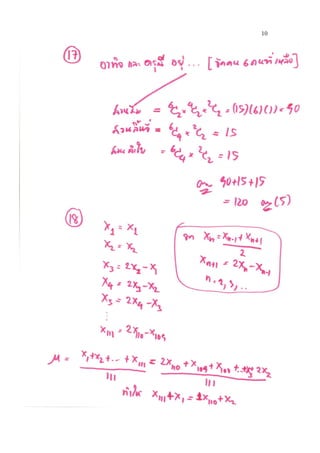 10
(17) อาทิจ และ ดรุณี อยู่ ... [จัดคน 6 คนที่เหลือ]
= ⁶C₂ × ⁴C₂ × ²C₂ = (15)(6)(1) = 90
= ⁶C₄ × ²C₂ = 15
= ⁶C₄ × ²C₂ = 15
90+15+15
= 120 ตอบ (5)
(18)
X₁ = X₁
X₂ = X₂
X₃ = 2X₂ - X₁
X₄ = 2X₃ - X₂
X₅ = 2X₄ - X₃
⋮
X₁₁₁ = 2X₁₁₀ - X₁₀₉
จาก Xₙ = (Xₙ₋₁ + Xₙ₊₁)/2
Xₙ₊₁ = 2Xₙ - Xₙ₋₁
n = 2, 3, ...
μ = (X₁ + X₂ + ... + X₁₁₁)/111 = (2X₁₁₀ + X₁₀₉ + X₁₀₈ + ... + X₃ + 2X₂)/111
ทำให้ X₁₁₁ + X₁ = X₁₁₀ + X₂